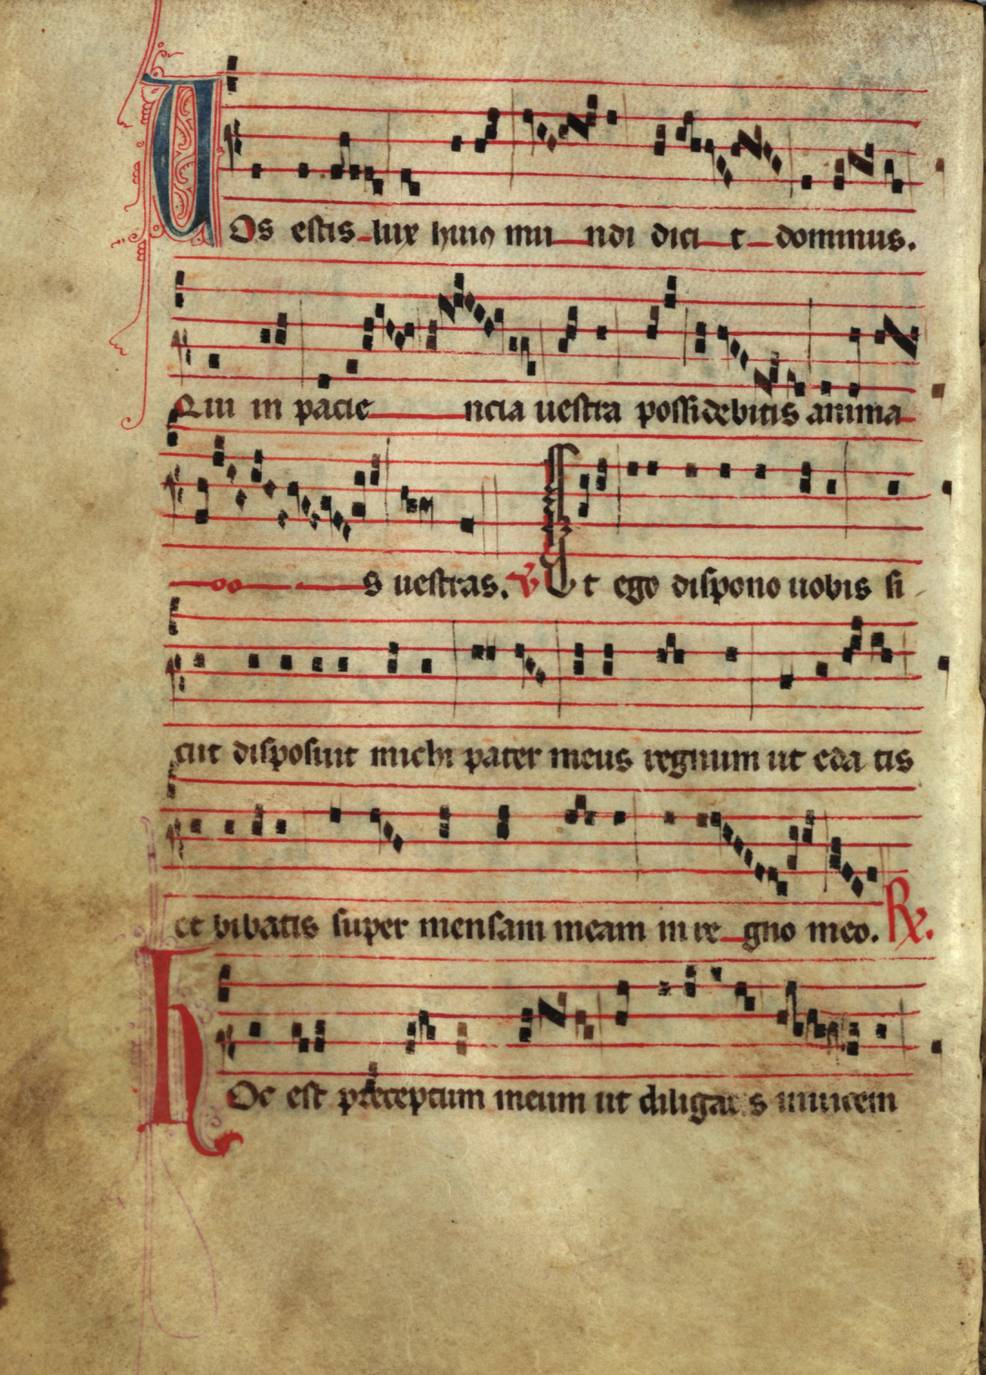 Vos estis lux huiꝯ mundi dicit dominus.
Qui in pacientia uestra possidebitis anima
s uestras. ℣ Et ego dispono uobis si
cut disposuit michi pater meus regnum ut edatis
et bibatis super mensam meam in regno meo. ℟.
Hoc est preceptum meum ut diligatis inuicem